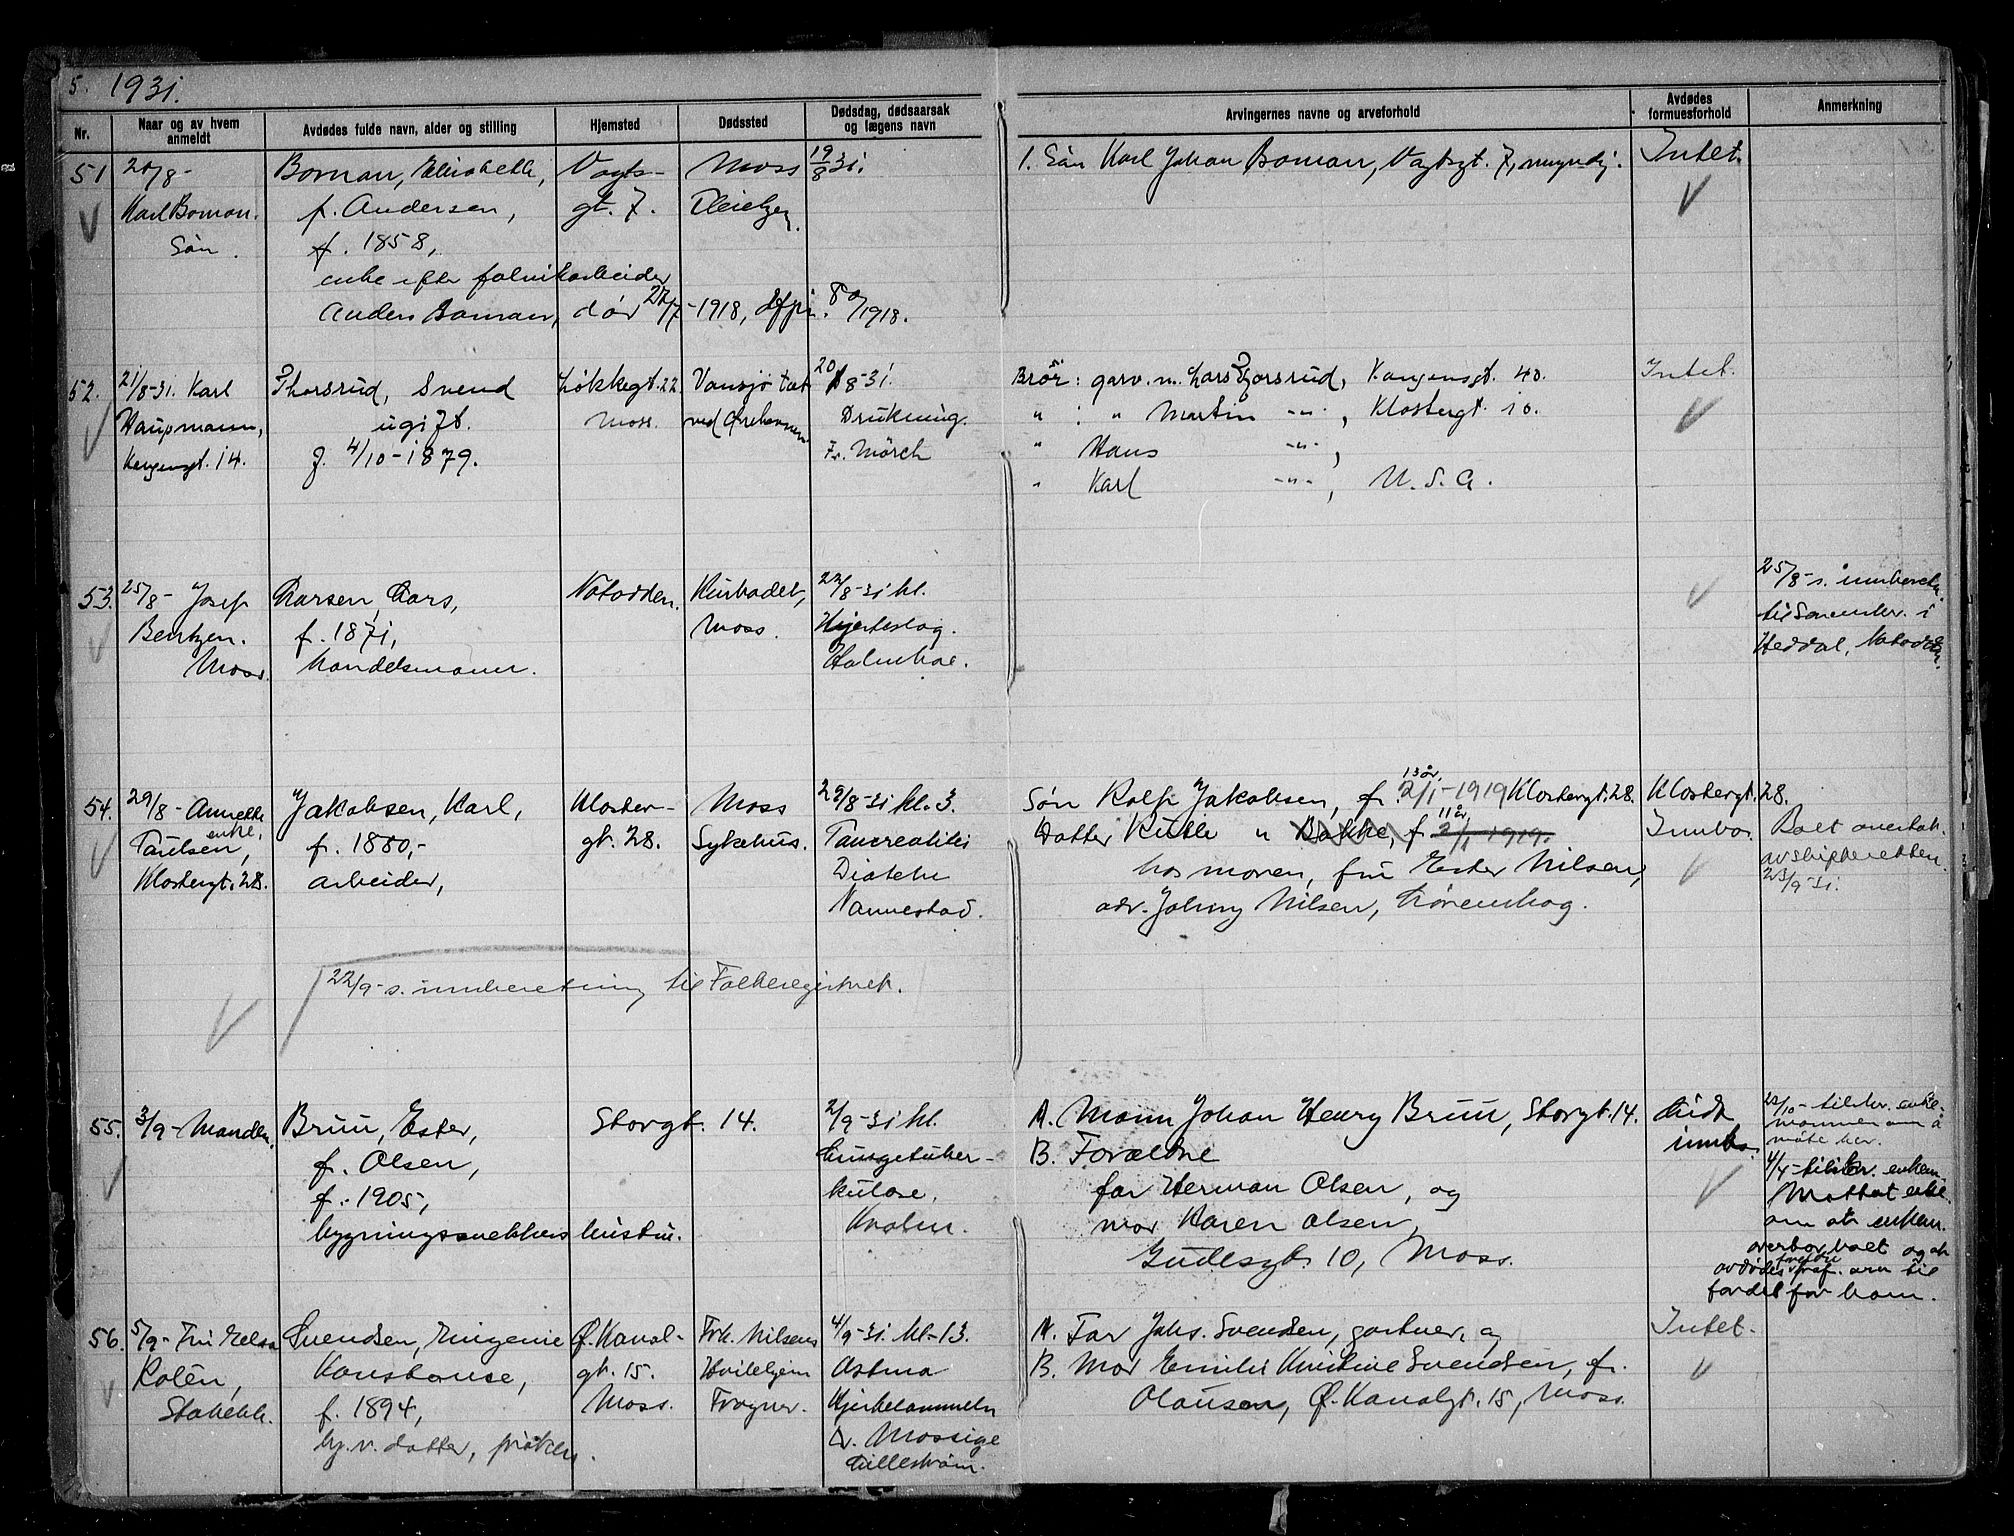 5. 1931.
Nr.
Naar og av hvem anmeldt
Avdødes fulde navn, alder og stilling
Hjemsted
Dødssted
Dødsdag, dødsaarsak og lægens navn
Arvingernes navne og arveforhold
Avdødes formuesforhold
Anmerkning
51
20/8-
Karl Boman.
Søn.
Boman, Elisabeth,
f. Andersen,
f. 1858,
enke efter fabrikarbeider
Anders Boman, død 22/7-1918,
80/1918.
Vogts-
gt. 7.
Moss
Pleiehjem.
19/8 31.
1. Søn Karl Johan Boman, Vogtsgt. 7, myndig.
Intet.
52.
21/8-31. Karl
Haupmann,
Kongensgt. 14.
Thorsrud, Svend
ugift.
f. 4/10-1879.
Løkkegt. 22
Moss.
Vansjø tæt
ved
20/8-31.
Drukning.
Fr. Mörch
Brør: garv. m. Lars Thorsrud, Kongensgt. 40.
" : " Martin -"-, Klostergt. 10.
" Hans -"-,
" Karl -"-, U.S.A.
Intet.
53.
25/8- Josef
Bentzen.
Moss.
Larsen, Lars,
f. 1871,
Handelsmann.
Notodden.
Kurbadet,
Moss.
22/8-31 kl.
Hjerteslag.
25/8- s. innberetn.
til Sorenskr. i
Heddal, Notodden.
54.
29/8- Annette
enke,
Paulsen,
Klostergt. 28.
Jakobsen, Karl,
f. 1880,-
arbeider,
Kloster-
gt. 28.
Moss
Sykehus.
29/8-31 kl. 3.
Pancreatitis
Nannestad.
13 år.
Søn Rolf Jakobsen, f. 2/1-1919 Klostergt. 28.
11 år
Datter Ruth " Bakke, f. 2/1 1919.
hos moren, fru Ester Nilsen,
adr. Johny Nilsen, Lørenskog.
Klostergt. 28.
Innbo.
Boet overtat.
av skifteretten.
23/9-31.
22/9- s. innberetning til Folkeregistret.
55.
3/9- Manden.
Bruu, Ester,
f. Olsen,
f. 1905,
bygningssnekkers hustru.
Storgt. 14.
2/9-31 kl.
Lungetuber-
kulose.
A. Mann Johan Henry Bruu, Storgt. 14.
B. Forældre
far Herman Olsen, og
mor Karen Olsen,
Gudesgt. 10, Moss.
Lidt
innbo.
22/10- tilskr. enke-
mannen om å
møte her.
4/4- tilskr. enkem.
Mottat erkl.
om at enkem.
overtar boet og at
avdødes foreldre fraf. arv til
fordel for ham.
56.
5/9- Fru Elsa
Rolén,
Svendsen, Eugenie
Konstanse,
f. 1894,
hj.v. datter, frøken.
Ø. Kanal-
gt. 15.
Moss.
Frk. Nilsens
Hvilehjem
Frogner.
4/9-31. kl. 13.
Astma
Dr. Mossige
Lillestrøm.
A. Far Johs. Svendsen, gartner, og
B. Mor Emilie Kristine Svendsen, f.
Olausen, Ø. Kanalgt. 15, Moss.
Intet.